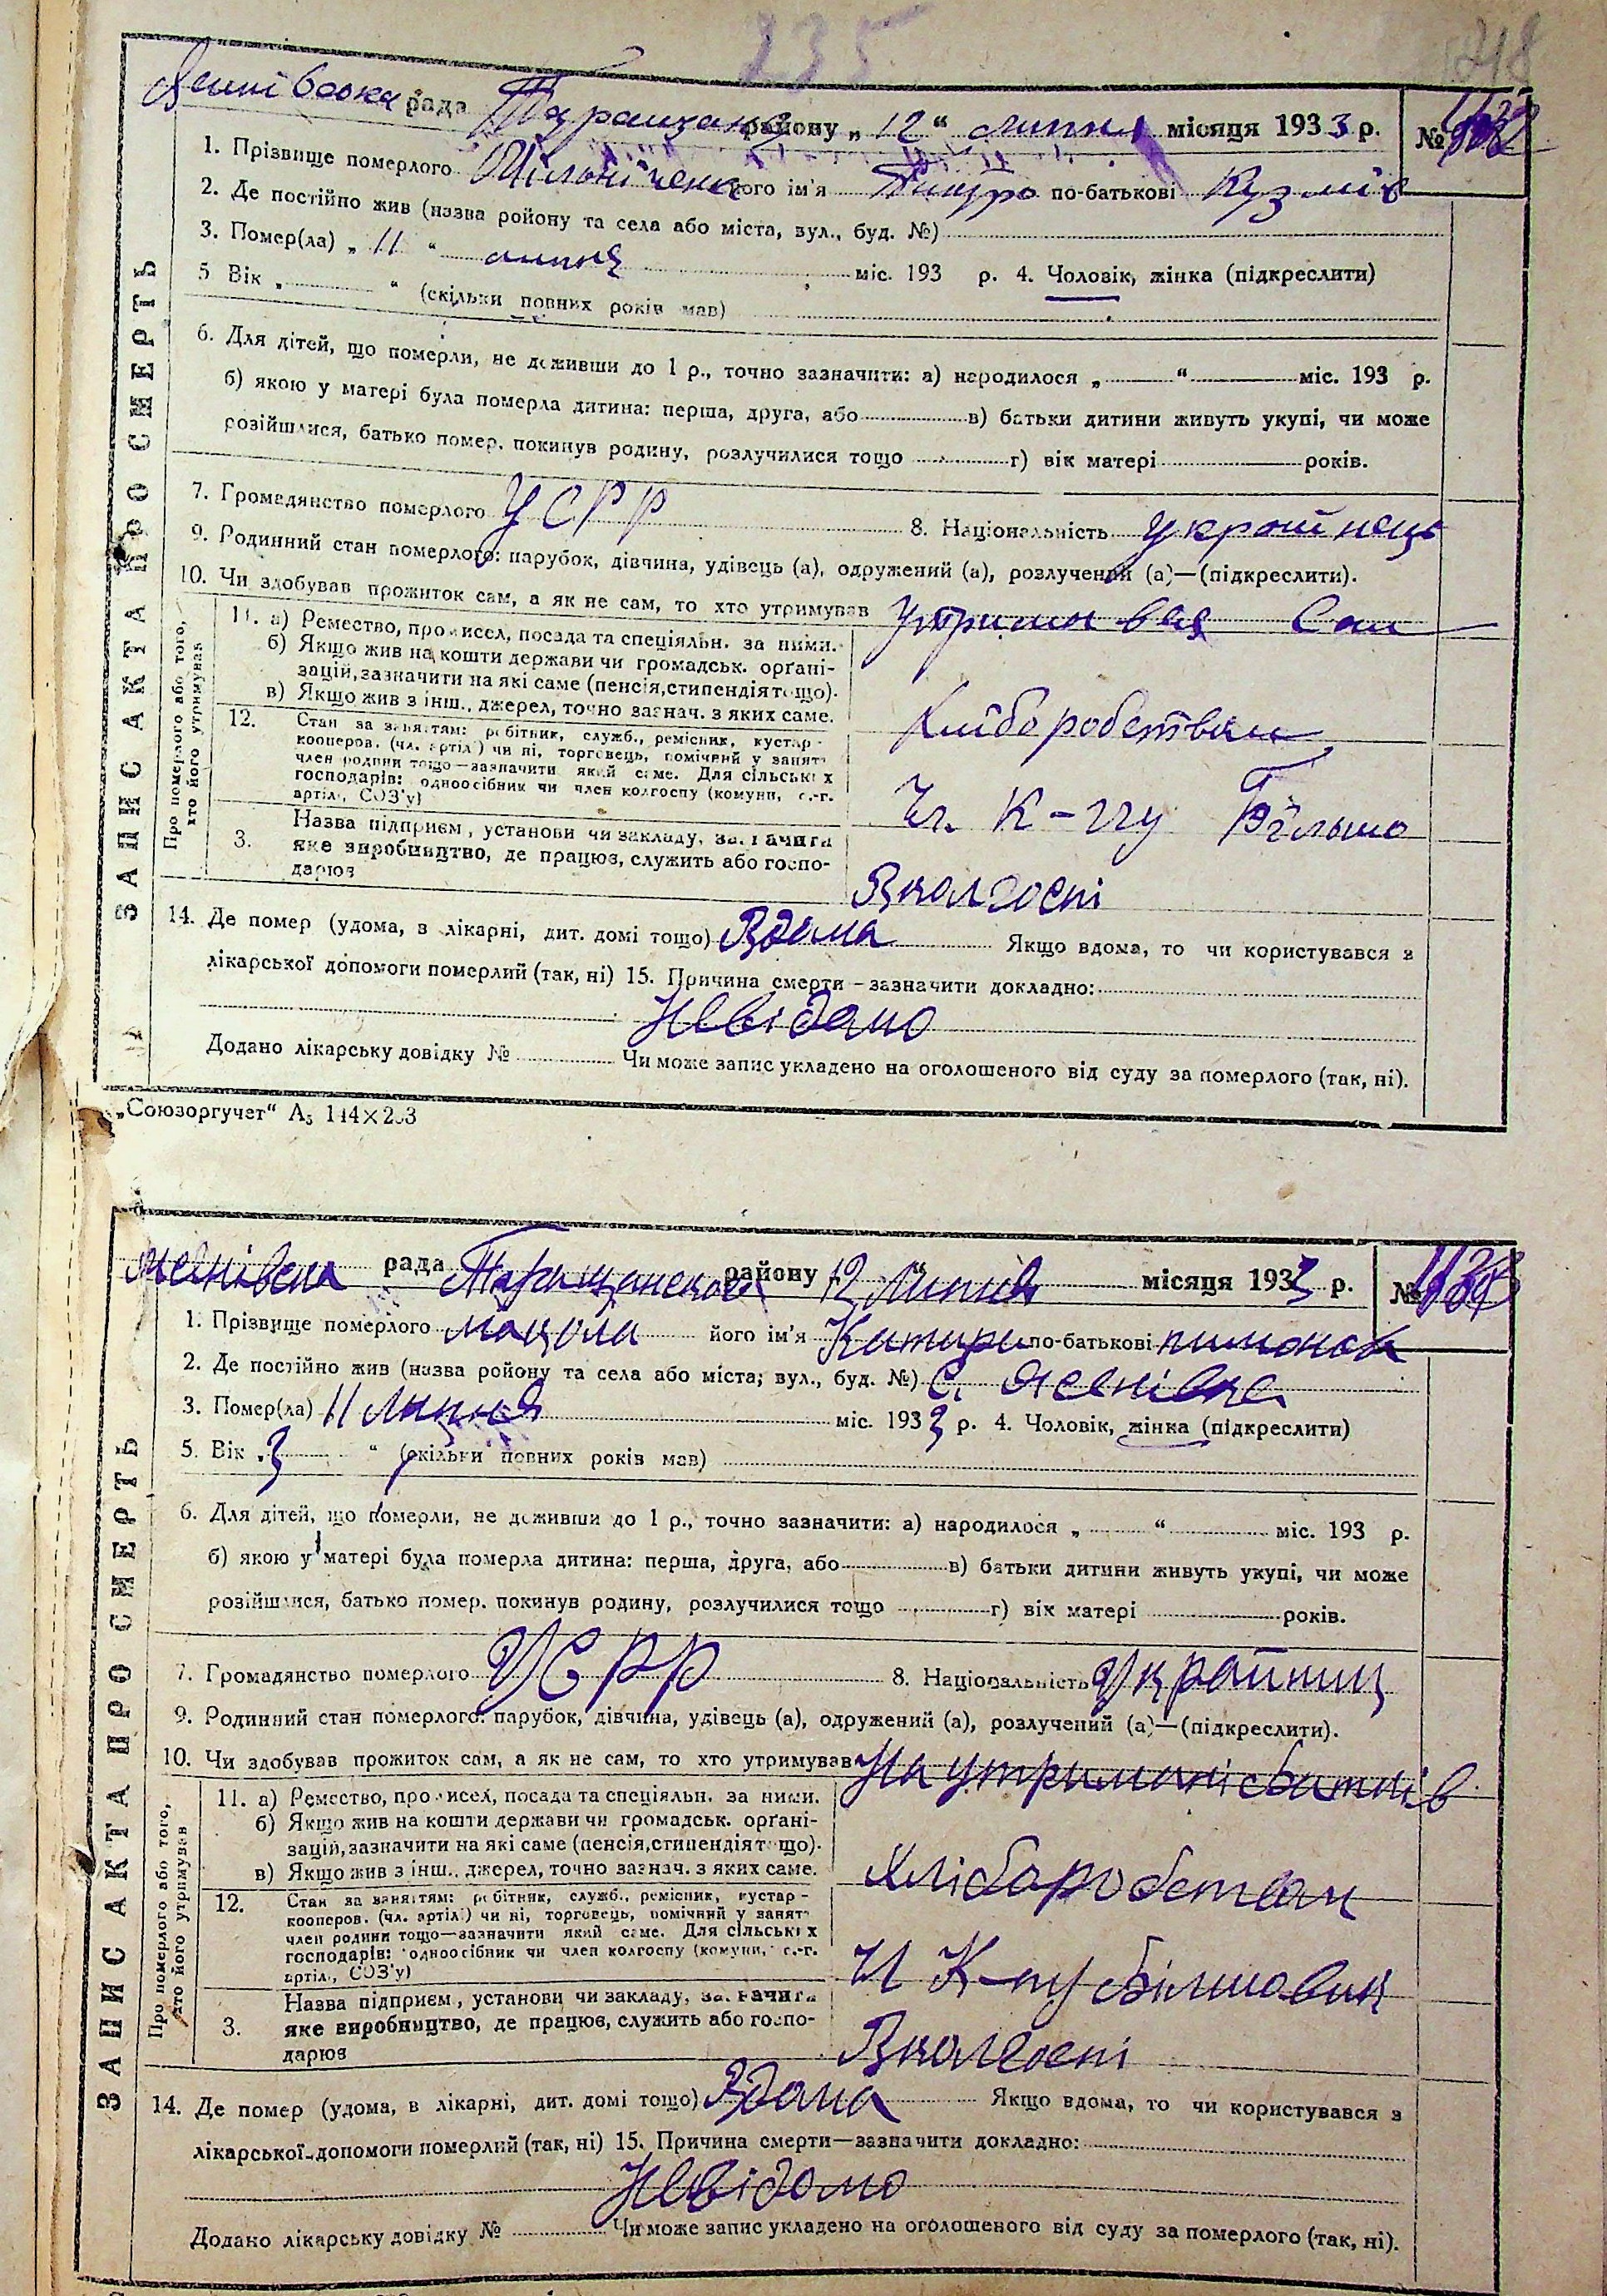 235
218
рада району „ 12 “ липня місяця 1933 р. №
1. Прізвище померлого його ім'я по-батькові
2. Де постійно жив (назва ройону та села або міста, вул., буд. №)
3. Помер(ла) „ 11 “ липня міс. 193 р. 4. Чоловік, жінка (підкреслити)
5 Вік „ “ (скільки повних років мав)
6. Для дітей, що померли, не доживши до 1 р., точно зазначити: а) народилося „ “ міс. 193 р.
б) якою у матері була померла дитина: перша, друга, або в) батьки дитини живуть укупі, чи може
розійшлися, батько помер, покинув родину, розлучилися тощо г) вік матері років.
7. Громадянство померлого УСРР 8. Національність українець
9. Родинний стан померлого: парубок, дівчина, удівець (а), одружений (а), розлучений (а)—(підкреслити).
10. Чи здобував прожиток сам, а як не сам, то хто утримував Утримовся Сам
11. а) Ремество, промисел, посада та спеціяльн. за ними.
б) Якщо жив на кошти держави чи громадськ. органі-
зацій, зазначити на які саме (пенсія, стипендія тощо).
в) Якщо жив з інш., джерел, точно зазнач. з яких саме.
12. Стан за заняттям: робітник, служб., ремісник, кустар -
кооперов. (чл. артілі) чи ні, торговець, помічний у занятт
член родини тощо—зазначити який саме. Для сільських
господарів: одноосібник чи член колгоспу (комуни, с.-г.
артілі, СОЗ'у)
Чл. К-ггу
3. Назва підприєм, установи чи закладу, зазначити
яке виробництво, де працює, служить або госпо-
дарює
Вколгоспі
14. Де помер (удома, в лікарні, дит. домі тощо) Вдома Якщо вдома, то чи користувався з
лікарської допомоги померлий (так, ні) 15. Причина смерти – зазначити докладно:
Невідомо
Додано лікарську довідку № Чи може запис укладено на оголошеного від суду за померлого (так, ні).
ЗАПИС АКТА ПРО СМЕРТЬ
Про померлого або того,
хто його утримував
„Союзоргучет“ А₅ 144×203
рада Таращанского району 12 Липня місяця 1933 р. №
1. Прізвище померлого Мацола його ім'я Катири по-батькові
2. Де постійно жив (назва ройону та села або міста; вул., буд. №) С.
3. Помер(ла) 11 Липня міс. 1933 р. 4. Чоловік, жінка (підкреслити)
5. Вік „ 3 “ (скільки повних років мав)
6. Для дітей, що померли, не доживши до 1 р., точно зазначити: а) народилося „ “ міс. 193 р.
б) якою у матері була померла дитина: перша, друга, або в) батьки дитини живуть укупі, чи може
розійшлися, батько помер, покинув родину, розлучилися тощо г) вік матері років.
7. Громадянство померлого УСРР 8. Національність Україниц
9. Родинний стан померлого: парубок, дівчина, удівець (а), одружений (а), розлучений (а)—(підкреслити).
10. Чи здобував прожиток сам, а як не сам, то хто утримував На утримані батьків
11. а) Ремество, промисел, посада та спеціяльн. за ними.
б) Якщо жив на кошти держави чи громадськ. органі-
зацій, зазначити на які саме (пенсія, стипендія тощо).
в) Якщо жив з інш., джерел, точно зазнач. з яких саме.
Хліборобством
12. Стан за заняттям: робітник, служб., ремісник, кустар -
кооперов. (чл. артілі) чи ні, торговець, помічний у занятт
член родини тощо—зазначити який саме. Для сільських
господарів: одноосібник чи член колгоспу (комуни, с.-г.
артілі, СОЗ'у)
більшовик
3. Назва підприєм, установи чи закладу, зазначити
яке виробництво, де працює, служить або госпо-
дарює
Вколгоспі
14. Де помер (удома, в лікарні, дит. домі тощо) Вдома Якщо вдома, то чи користувався з
лікарської допомоги померлий (так, ні) 15. Причина смерти—зазначити докладно:
Невідомо
Додано лікарську довідку № Чи може запис укладено на оголошеного від суду за померлого (так, ні).
ЗАПИС АКТА ПРО СМЕРТЬ
Про померлого або того,
хто його утримував